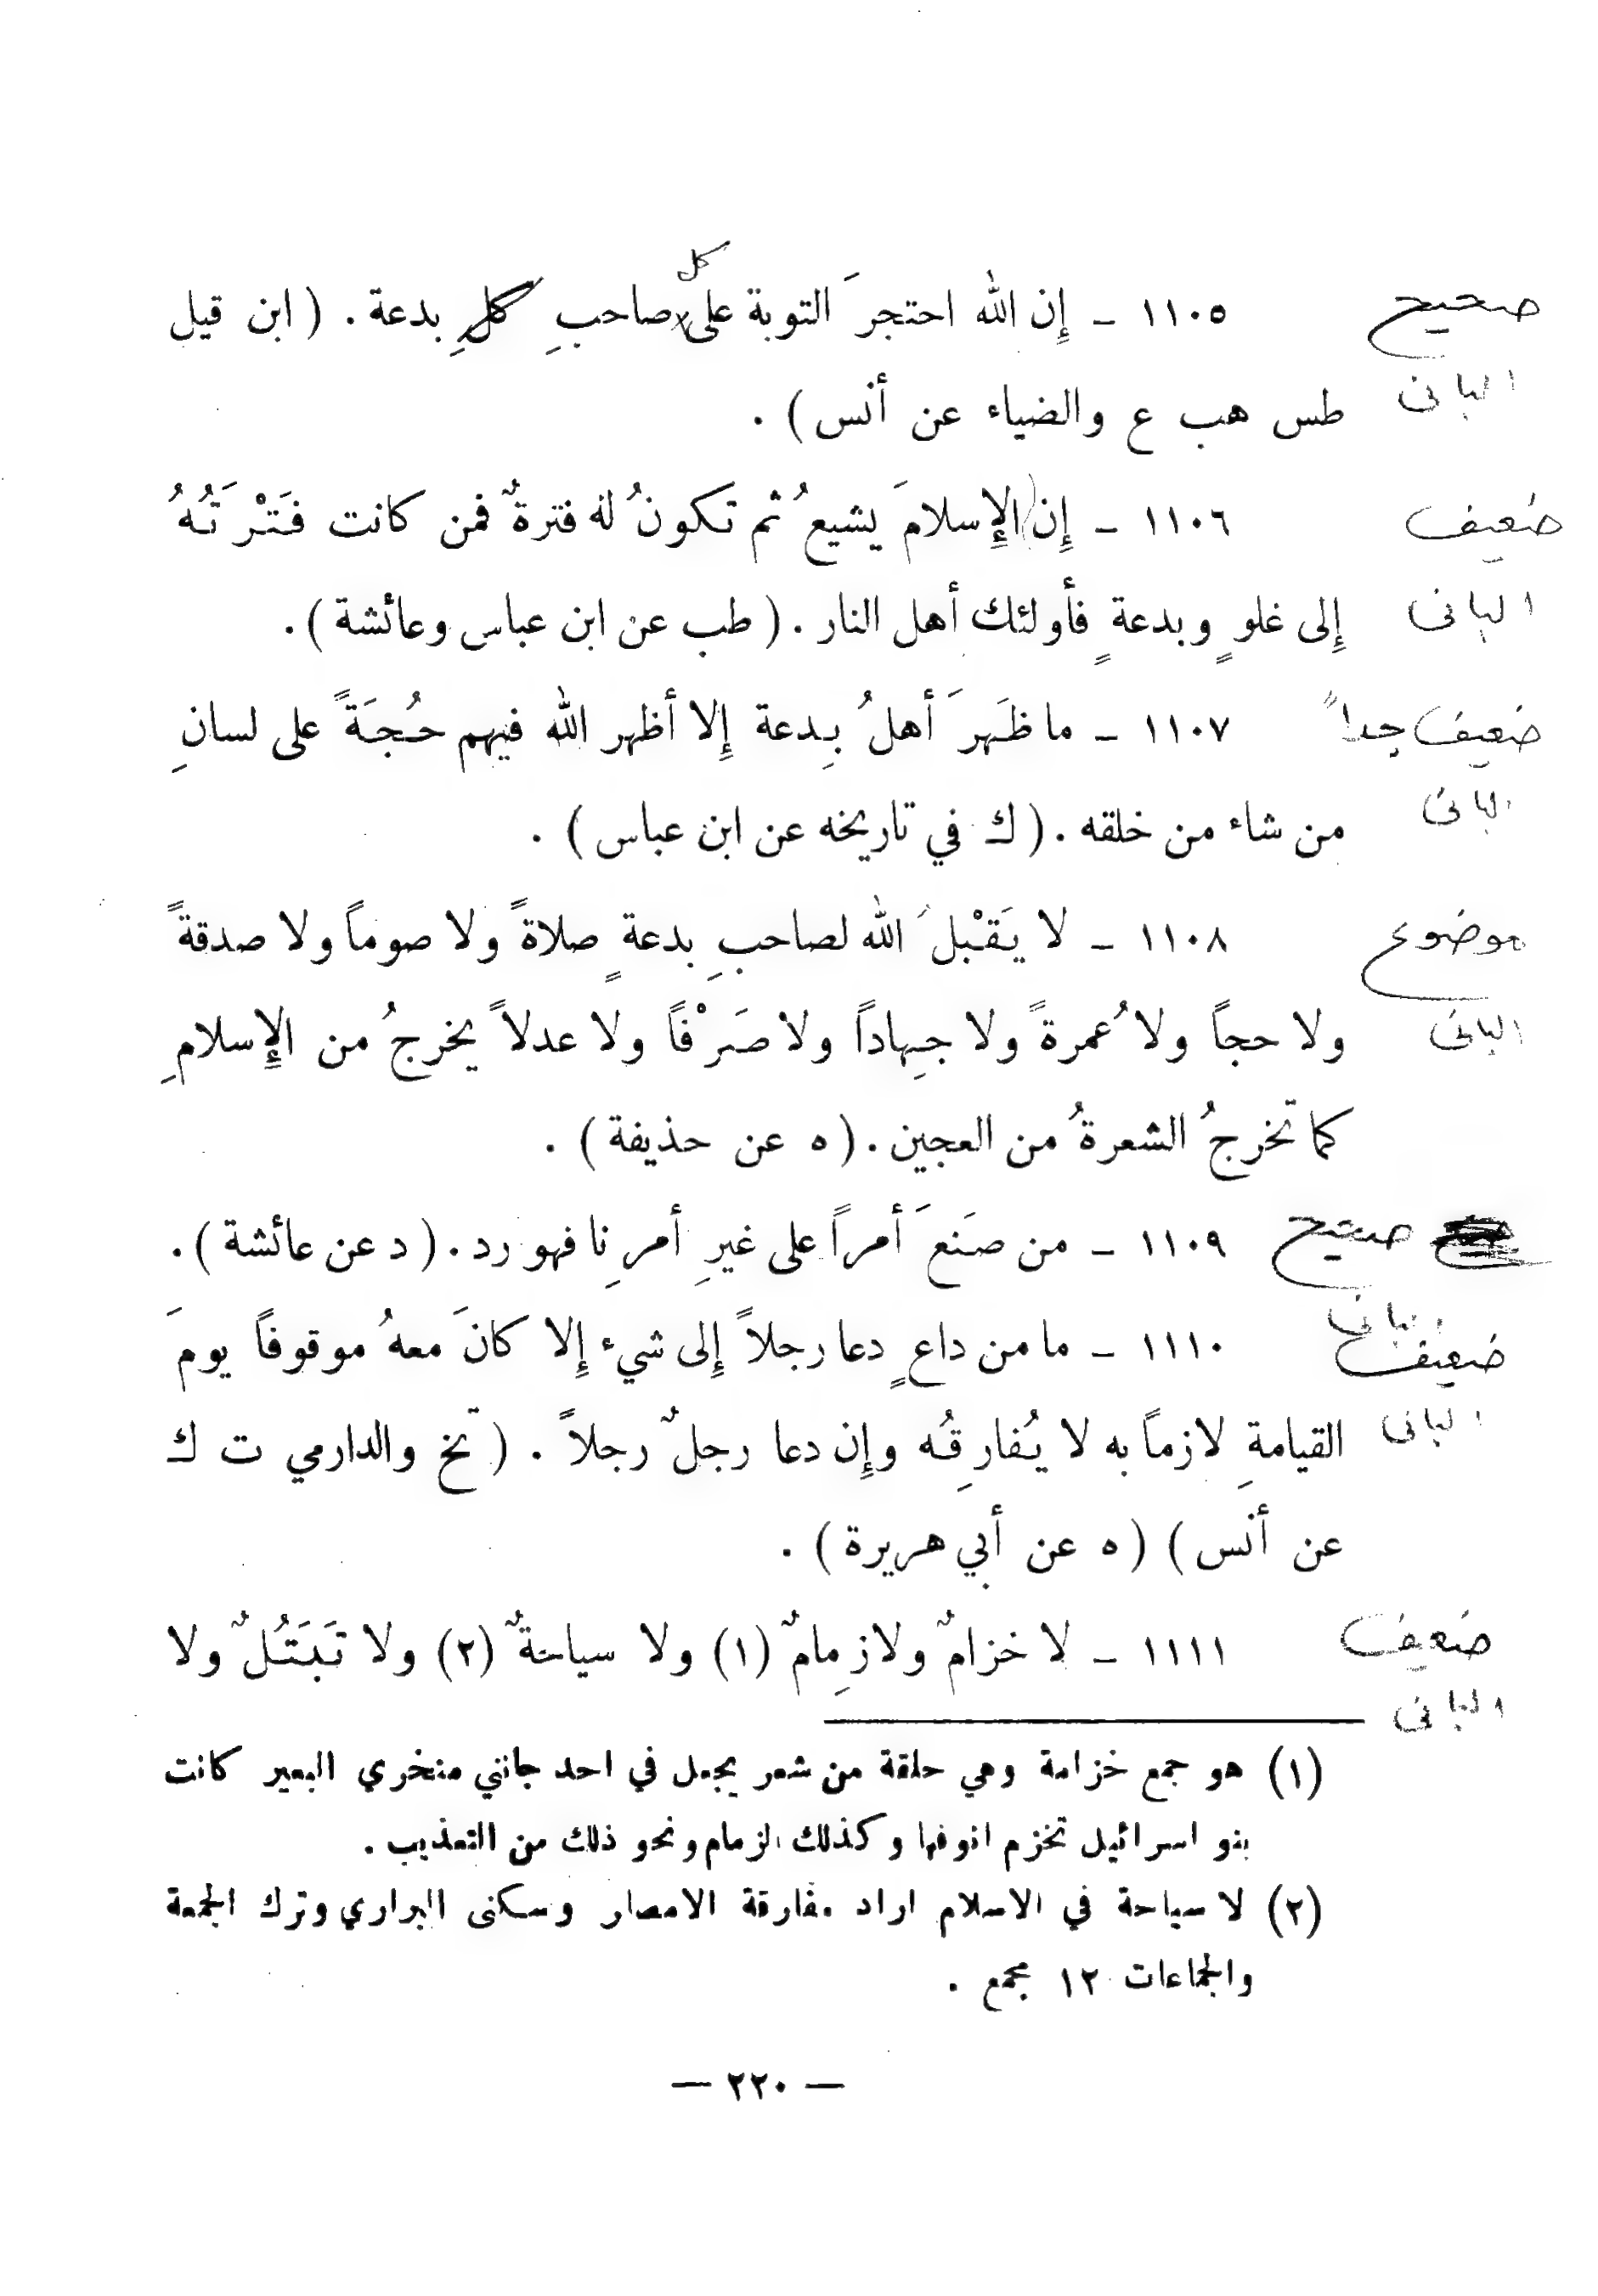 كل
صحيح ١١٠٥ ـ إِن الله احتجرَ التوبة على صاحبِ كلِ بدعة . ( ابن قيل
البانى طس هب ع والضياء عن أنس ) .
ضعيف ١١٠٦ ـ إِن الإِسلامَ يشيعُ ثم تكونُ له فترةٌ فمن كانت فَتْرَتُهُ
البانى إِلى غلوٍ وبدعةٍ فأولئك أهل النار . ( طب عن ابن عباس وعائشة ) .
ضعيف جداً ١١٠٧ ـ ما ظَهرَ أهلُ بِدعة إِلا أظهر الله فيهم حُجَةً على لسانِ
البانى من شاء من خلقه . ( ك في تاريخه عن ابن عباس ) .
موضوع ١١٠٨ ـ لا يَقْبلَ الله لصاحبِ بدعةٍ صلاةً ولا صوماً ولا صدقةً
البانى ولا حجاً ولا عُمرةً ولا جِهاداً ولا صَرْفاً ولا عدلاً يخرجُ من الإِسلامِ
كما تخرجُ الشعرةُ من العجين . ( ه عن حذيفة ) .
صحيح ١١٠٩ ـ من صنَعَ أمراً على غيرِ أمرِنا فهو رد . ( د عن عائشة ) .
البانى
ضعيف ١١١٠ ـ ما من داعٍ دعا رجلاً إِلى شيء إِلا كانَ معهُ موقوفاً يومَ
البانى القيامةِ لازماً به لا يُفارِقُه وإِن دعا رجلٌ رجلاً . ( تخ والدارمي ت ك
عن أنس ) ( ه عن أبي هريرة ) .
ضعيف ١١١١ ـ لا خزامٌ ولا زِمامٌ (١) ولا سياحةٌ (٢) ولا تَبَتُلٌ ولا
البانى
(١) هو جمع خزامة وهي حلقة من شعر يجعل في احد جانبي منخري البعير كانت
بنو اسرائيل تخزم انوفها وكذلك الزمام ونحو ذلك من التعذيب .
(٢) لا سياحة في الاسلام اراد مفارقة الامصار وسكنى البراري وترك الجمعة
والجماعات ١٢ مجمع .
— ٢٢٠ —